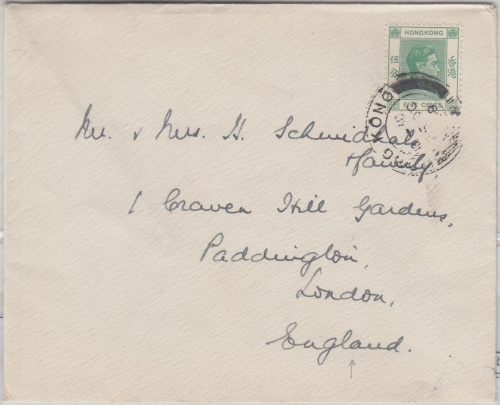 HONGKONG
FIVE CENTS
HONG KONG
Mr. & Mrs. H. Schmidhals
& family,
1 Craven Hill Gardens,
Paddington,
London,
England.